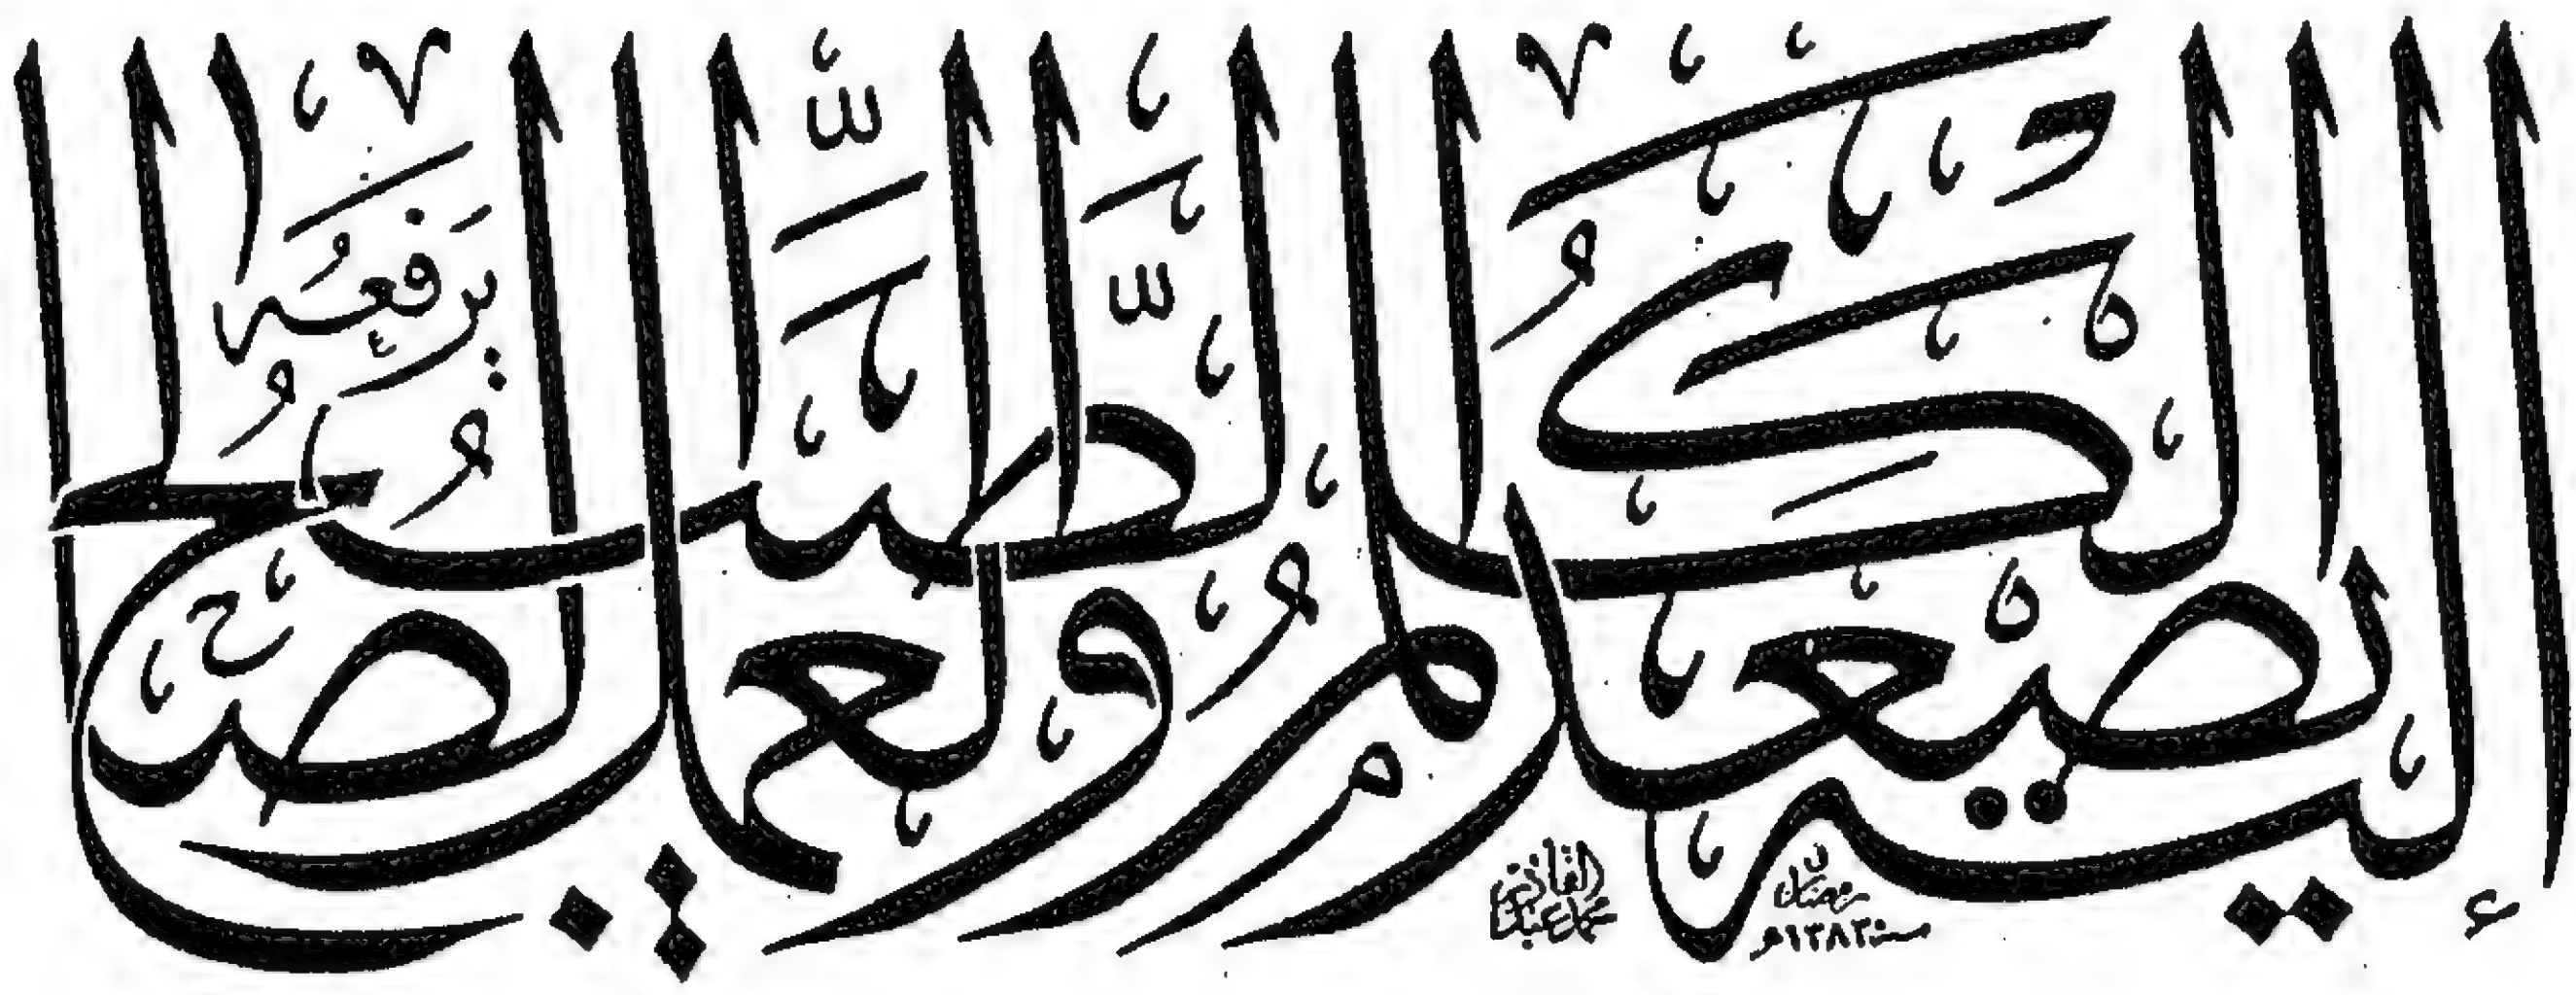 إليه يصعد الكلم الطيب والعمل الصالح يرفعه
محمد عبد القادر
رمضان
سنة ١٣٨٣هـ